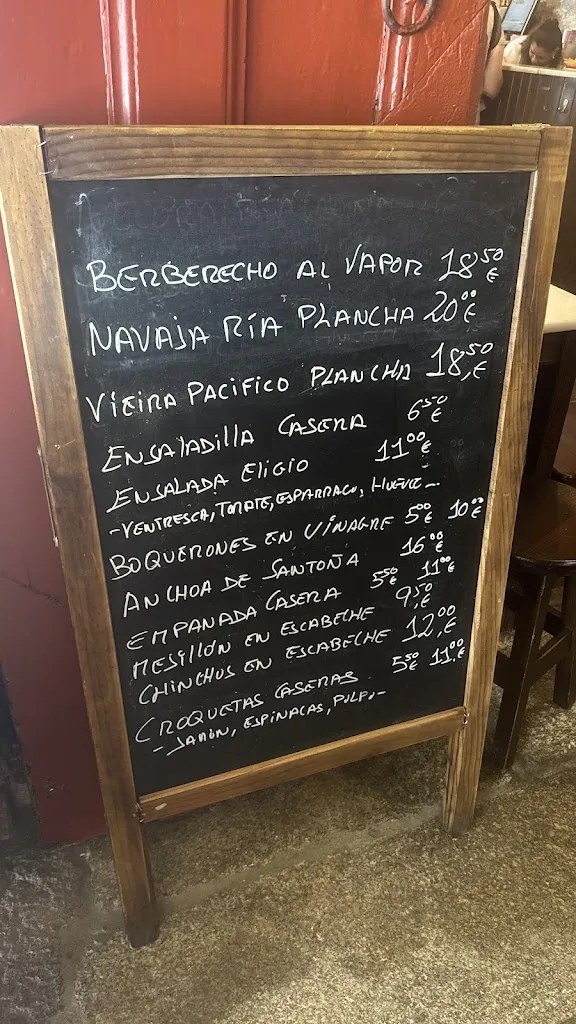 BERBERECHO AL VAPOR 18,50 €
NAVAJA RÍA PLANCHA 20,00 €
VIEIRA PACIFICO PLANCHA 18,50 €
ENSALADILLA CASERA 6,50 €
ENSALADA ELIGIO 11,00 €
- VENTRESCA, TOMATE, ESPARRAGO, HUEVO -
BOQUERONES EN VINAGRE 5,00 € 10,00 €
ANCHOA DE SANTOÑA 16,00 €
EMPANADA CASERA 5,50 € 11,00 €
MEJILLÓN EN ESCABECHE 9,50 €
CHINCHOS EN ESCABECHE 12,00 €
CROQUETAS CASERAS 5,50 € 11,00 €
- JAMÓN, ESPINACAS, PULPO -